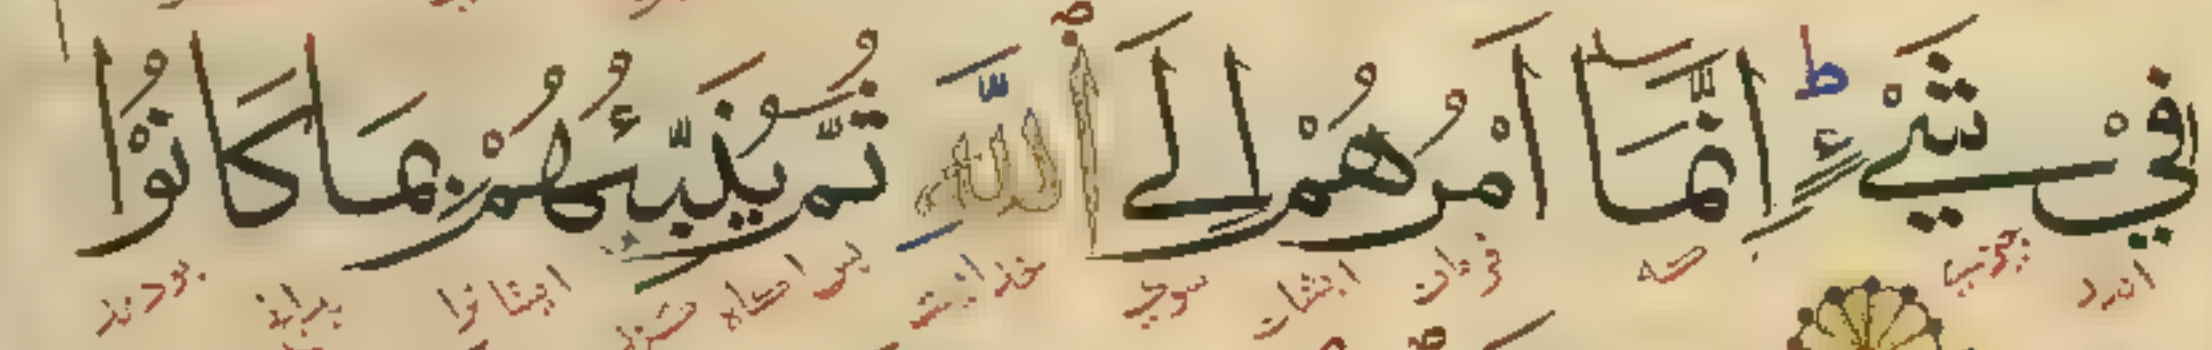 فِيْ شَيْءٍ ط اِنَّمَآ اَمْرُهُمْ اِلَى اللّٰهِ ثُمَّ يُنَبِّئُهُمْ بِمَا كَانُوْا
اندر چیزے که فرمان ایشان سوی خدا است پس آگاه ایشانرا بودند